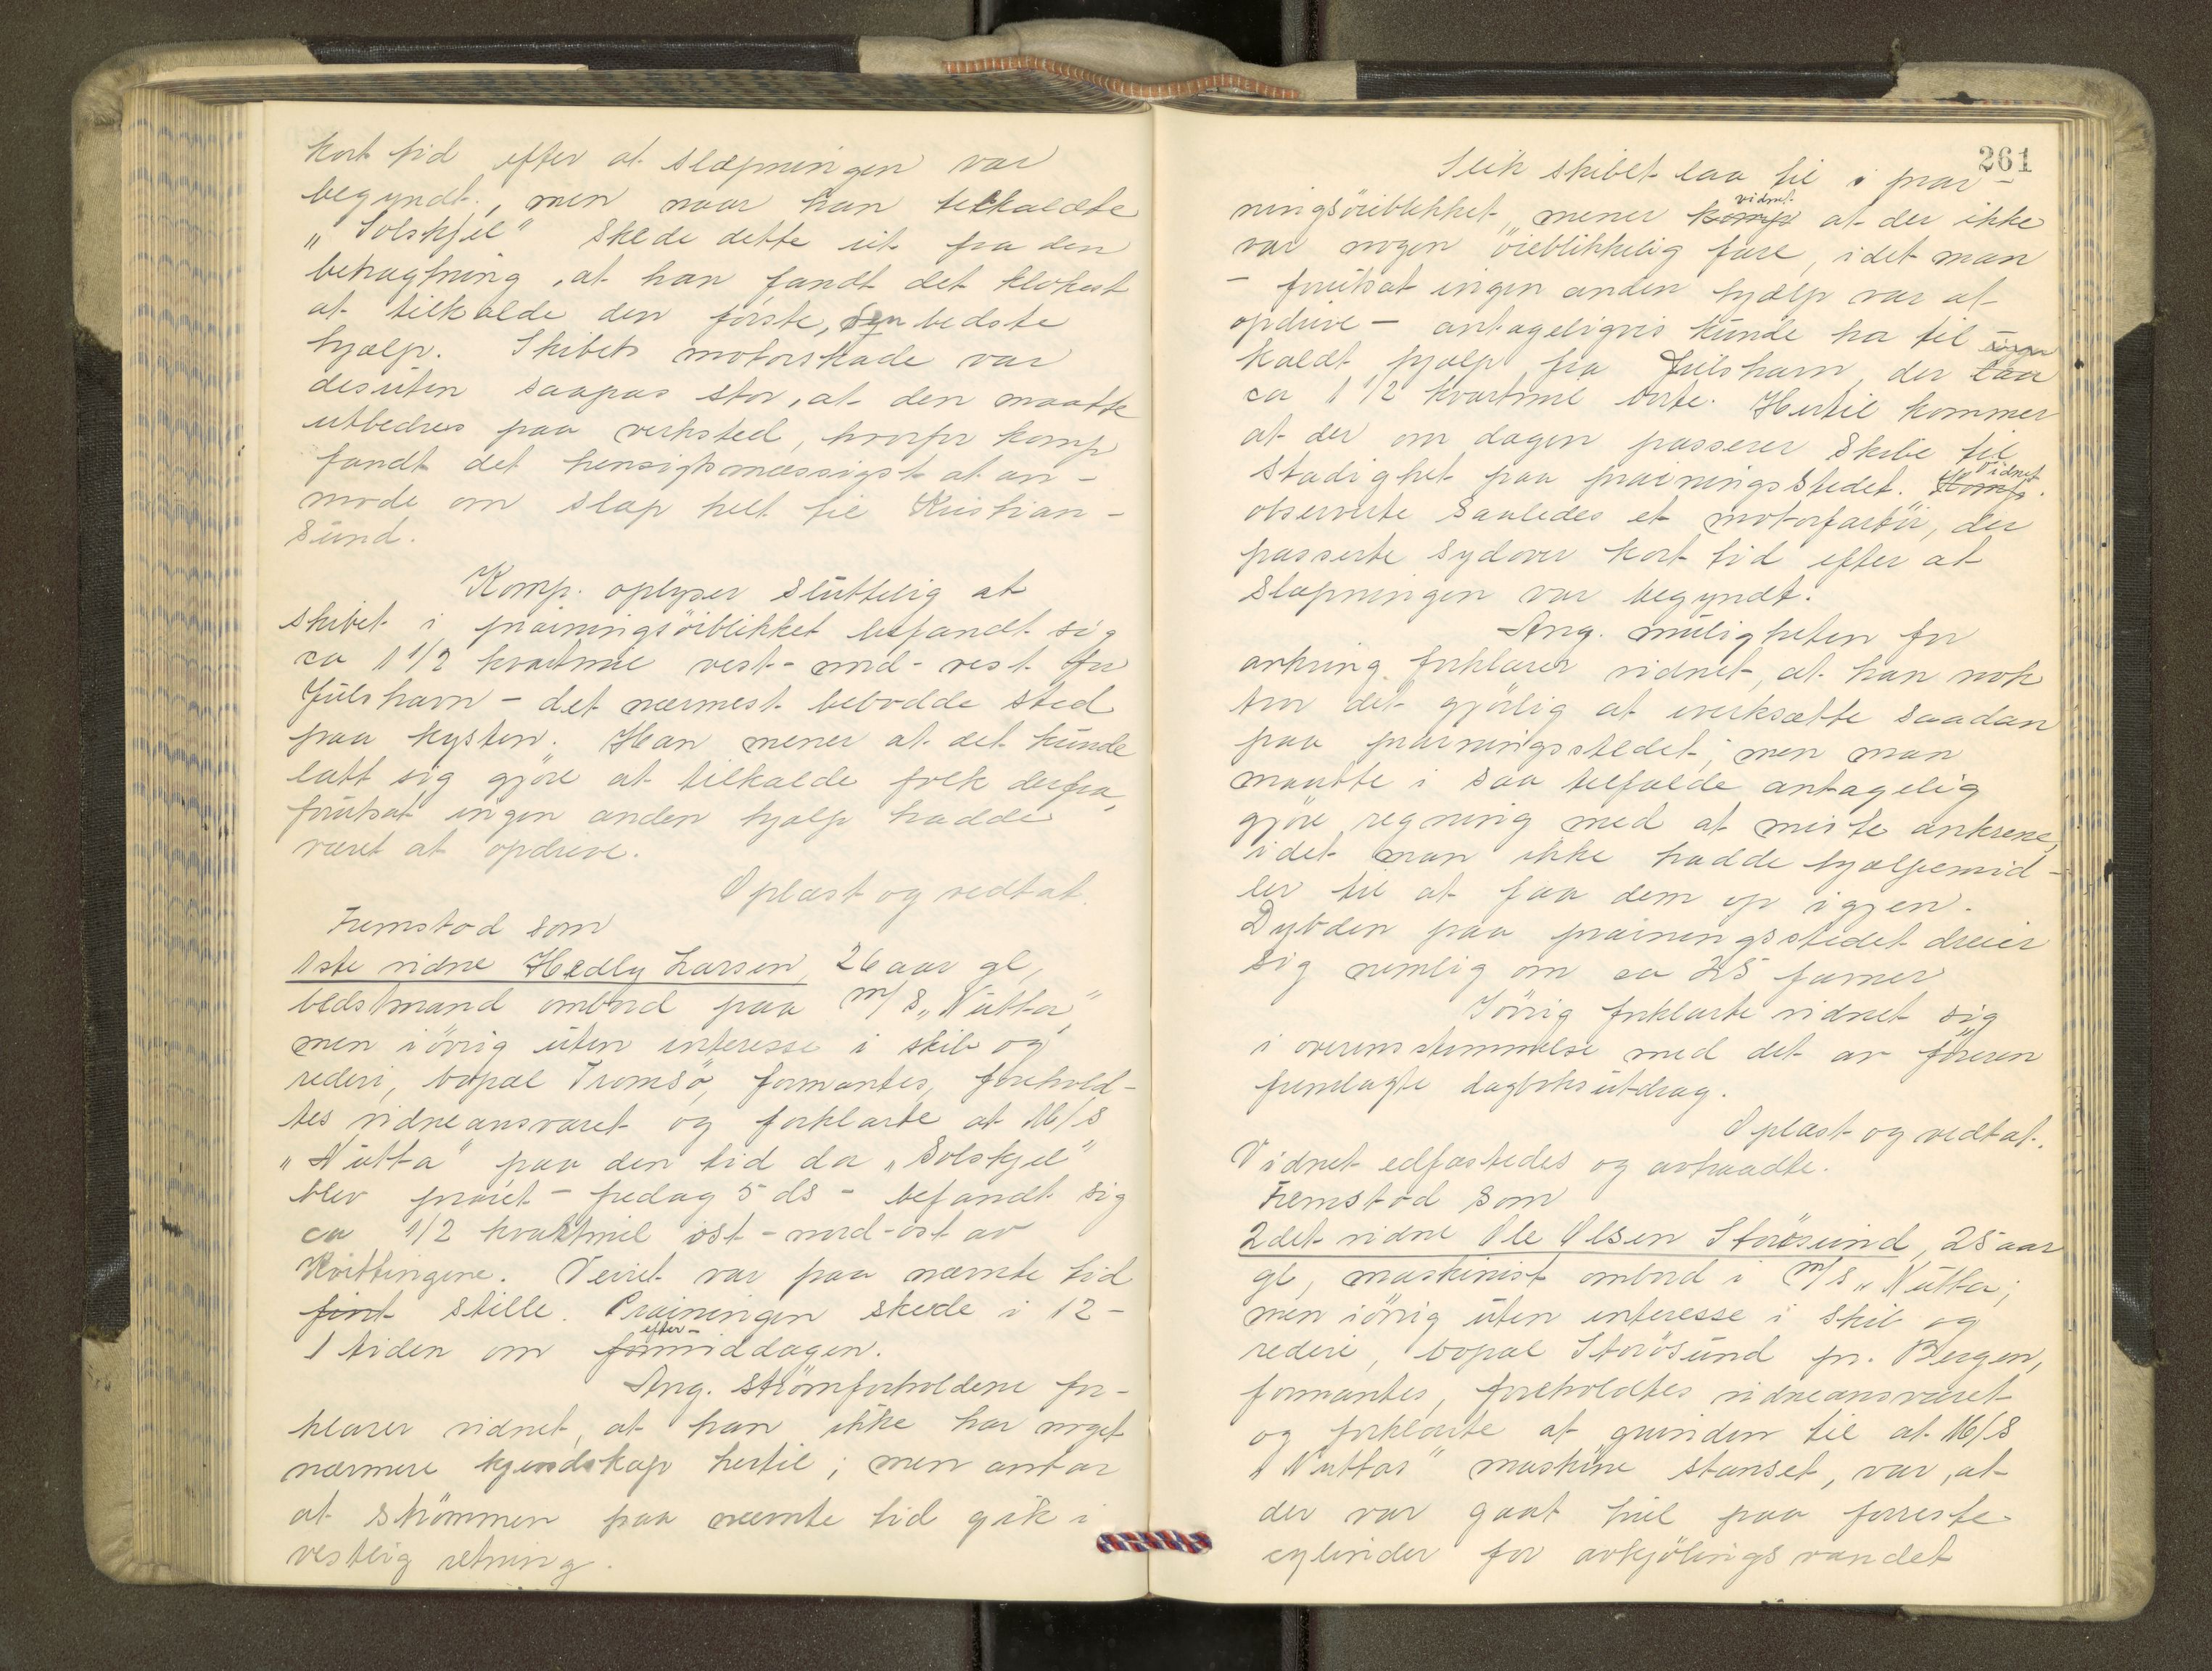 kort tid efter at slæpningen var
begyndt, men naar han tilkaldte
„Solskjel" skede dette ut fra den
betragtning, at han fandt det klokest
at tilkalde den første, den bedste
hjælp. Skibets motorskade var
desuten saapas stor, at den maatte
utbedres paa verksted, hvorfor komp
fandt det hensigtsmæssigst at an-
mode om slæp helt til Kristian-
sund.
Komp. oplyser sluttelig at
skibet i prainingsöiblikket befandt sig
ca 1 1/2 kvartmil vest-nord-vest for
Julshavn - det nærmest bebodde sted
paa kysten. Han mener at det kunde
latt sig gjöre at tilkalde folk derfra,
forutsat ingen anden hjælp hadde
været at opdrive.
Oplæst og vedtat.
Fremstod som
1ste vidne Hedly Larsen, 26 aar gl,
bedstmand ombord paa m/S „Nutta",
men iövrig uten interesse i skib og
rederi, bopæl Tromsö, formantes, forehold-
tes vidneansvaret og forklarte at M/S
„Nutta" paa den tid da „Solskjel"
blev praiet - fredag 5 ds - befandt sig
ca 1/2 kvartmil öst-nord-öst av
Kvittingene. Veiret var paa nævnte tid
fint stille. Prainingen skede i 12-
1 tiden om formiddagen.
efter-
Ang. strömforholdene for-
klarer vidnet, at han ikke har noget
nærmere kjendskap hertil; men antar
at strömmen paa nævnte tid gik i
vestlig retning.
261
Slik skibet laa til i prai-
ningsöieblikket, mener komp vidnet at der ikke
var nogen öieblikkelig fare, idet man
- forutsat ingen anden hjælp var at
opdrive - antageligvis kunde ha til
kaldt hjælp fra Julshavn, der laa
ca 1 1/2 kvartmil borte. Hertil kommer
at der om dagen passerer skibe til
stadighet paa prainingsstedet. Komp. Vidnet
observerte saaledes et motorfartöi, der
passerte sydover kort tid efter at
slæpningen var begyndt.
Ang. muligheten for
ankring forklarer vidnet, at han nok
tror det gjörlig at iverksætte saadan
paa prainingsstedet; men man
maatte i saa tilfælde antagelig
gjöre regning med at miste ankrene,
idet man ikke hadde hjælpemid-
ler til at faa dem op igjen.
Dybden paa prainingsstedet dreier
sig nemlig om ca 25 favner
Iövrig forklarte vidnet sig
i overensstemmelse med det av föreren
fremlagte dagboksutdrag.
Oplæst og vedtat.
Vidnet edfæstedes og avtraadte.
Fremstod som
2det vidne Ole Olsen Storösund, 25 aar
gl, maskinist ombord i m/S „Nutta;
men iövrig uten interesse i skib og
rederi, bopæl Storösund pr. Bergen,
formantes, foreholdtes vidneansvaret
og forklarte at grunden til at M/S
„Nuttas" maskine stanset, var, at
der var gaat hul paa forreste
cylinder for avkjölingsvandet